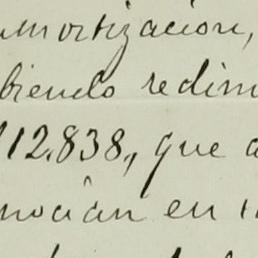 amortización,
biendo redim
112.838,, que a
nocían en